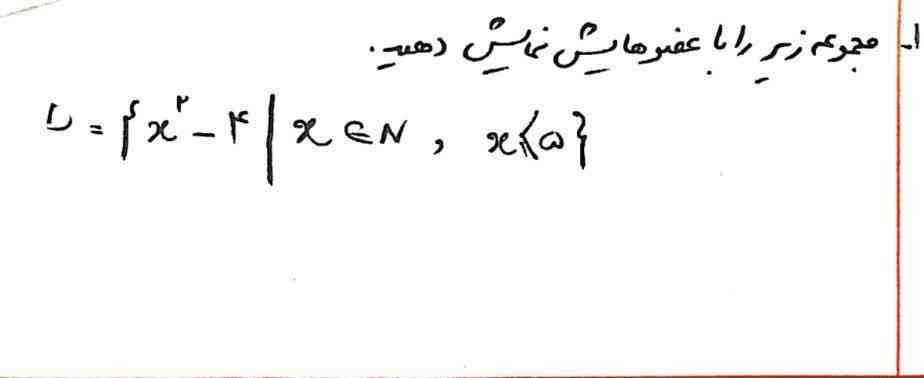 ۱- مجموعه زیر را با عضوهایش نمایش دهید.
D = {x^۲ - ۴ | x ∈ N , x ≤ ۵}